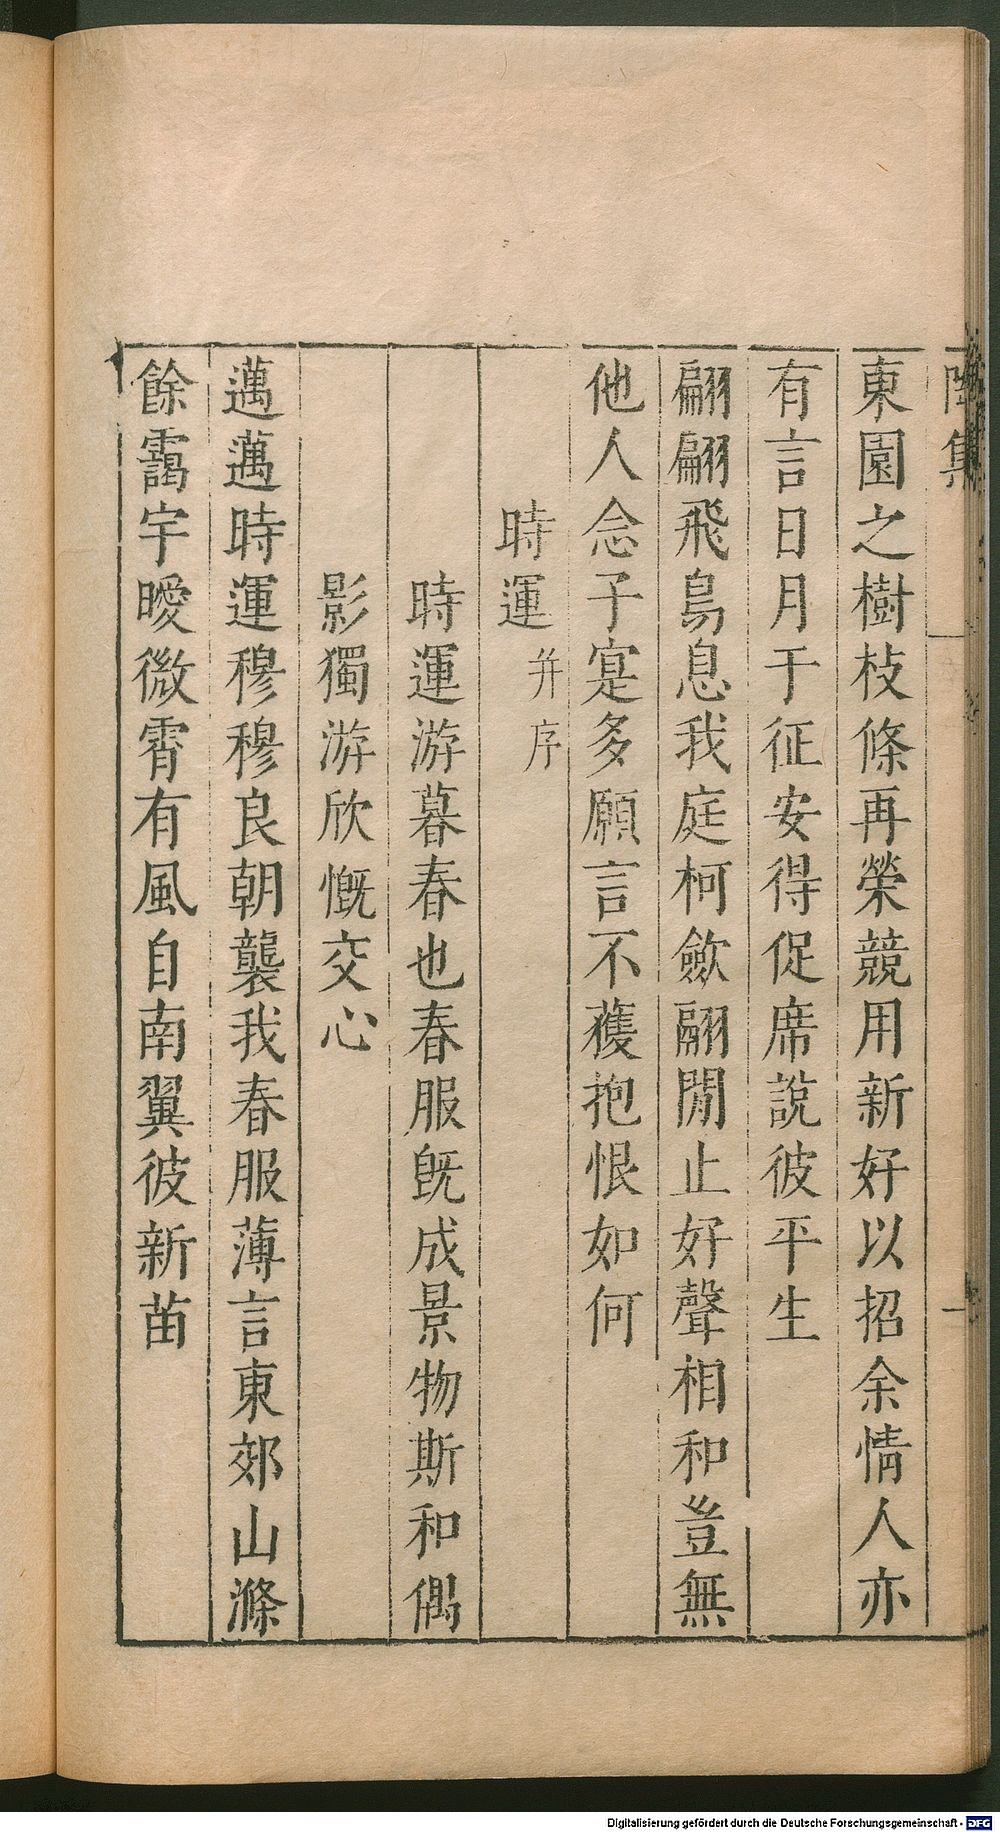 集
東園之樹枝條再榮競用新好以招余情人亦
有言日月于征安得促席說彼平生
翩翩飛鳥息我庭柯斂翮閒止好聲相和豈無
他人念子寔多願言不獲抱恨如何
時運 并序
時運游暮春也春服既成景物斯和偶
影獨游欣慨交心
邁邁時運穆穆良朝襲我春服薄言東郊山滌
餘靄宇曖微霄有風自南翼彼新苗
Digitalisierung gefördert durch die Deutsche Forschungsgemeinschaft - DFG